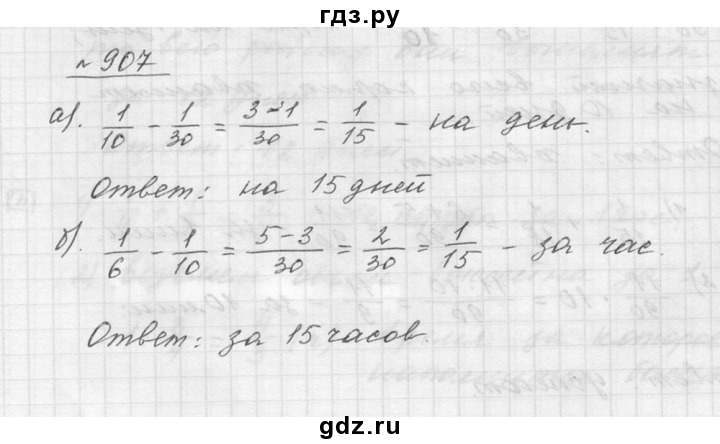 гдз.ру
№ 907
а). 1/10 - 1/30 = 3-1/30 = 1/15 - на день.
Ответ: на 15 дней
б). 1/6 - 1/10 = 5-3/30 = 2/30 = 1/15 - за час.
Ответ: за 15 часов.
gdz.ru